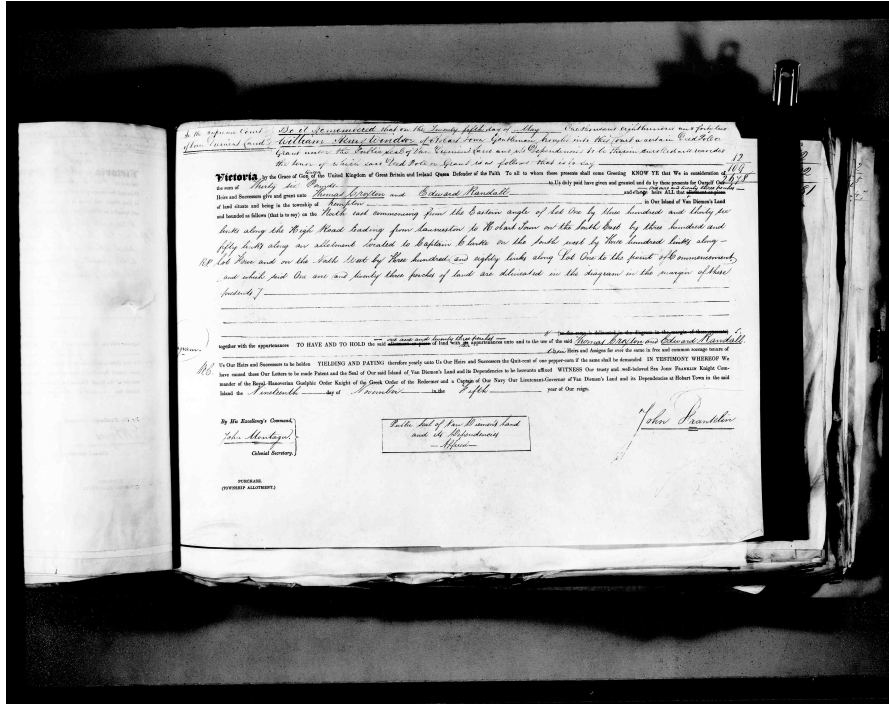 In the Supreme Court
of Van Diemen's Land
Be it Remembered that on the Twenty fifth day of May One thousand eight hundred and forty two
William Henry Windsor of Hobart Town Gentleman brought into this Court a certain Deed Poll or
Grant under the Public Seal of Van Diemen's Land and its Dependencies to be therein Enrolled and recorded
the tenor of which said Deed Poll or Grant is as follows that is to say
Victoria by the Grace of God of the United Kingdom of Great Britain and Ireland Queen Defender of the Faith To all to whom these presents shall come Greeting KNOW YE that We in consideration of
the sum of thirty six Pounds to Us duly paid have given and granted and do by these presents for Ourself Our
Heirs and Successors give and grant unto Thomas Croxton and Edward Randall and Heirs ALL that one acre and twenty three perches
of land situate and being in the township of Kempton in Our Island of Van Diemen's Land
and bounded as follows (that is to say) on the North east commencing from the Eastern angle of lot One by three hundred and thirty six
links along the High Road leading from Launceston to Hobart Town on the South East by three hundred and
fifty links along an allotment located to Captain Clarke on the South west by three hundred links along
lot Four and on the North West by three hundred and eighty links along Lot One to the point of Commencement
and which said One acre and twenty three perches of land are delineated in the diagram in the margin of these
presents
together with the appurtenances TO HAVE AND TO HOLD the said one acre and twenty three perches of land with appurtenances unto and to the use of the said Thomas Croxton and Edward Randall
Heirs and Assigns for ever the same in free and common soccage tenure of
Us Our Heirs and Successors to be holden YIELDING AND PAYING therefore yearly unto Us Our Heirs and Successors the Quit-rent of one pepper-corn if the same shall be demanded IN TESTIMONY WHEREOF We
have caused these Our Letters to be made Patent and the Seal of Our said Island of Van Diemen's Land and its Dependencies to be hereunto affixed WITNESS Our trusty and well-beloved Sir JOHN FRANKLIN Knight Com-
mander of the Royal Hanoverian Guelphic Order Knight of the Greek Order of the Redeemer and a Captain of Our Navy Our Lieutenant-Governor of Van Diemen's Land and its Dependencies at Hobart Town in the said
Island the Nineteenth day of November in the Fifth year of Our reign.
By His Excellency's Command,
John Montagu
Colonial Secretary.
Public Seal of Van Diemen's Land
and its Dependencies
Affixed
John Franklin
PURCHASE.
(TOWNSHIP ALLOTMENT.)